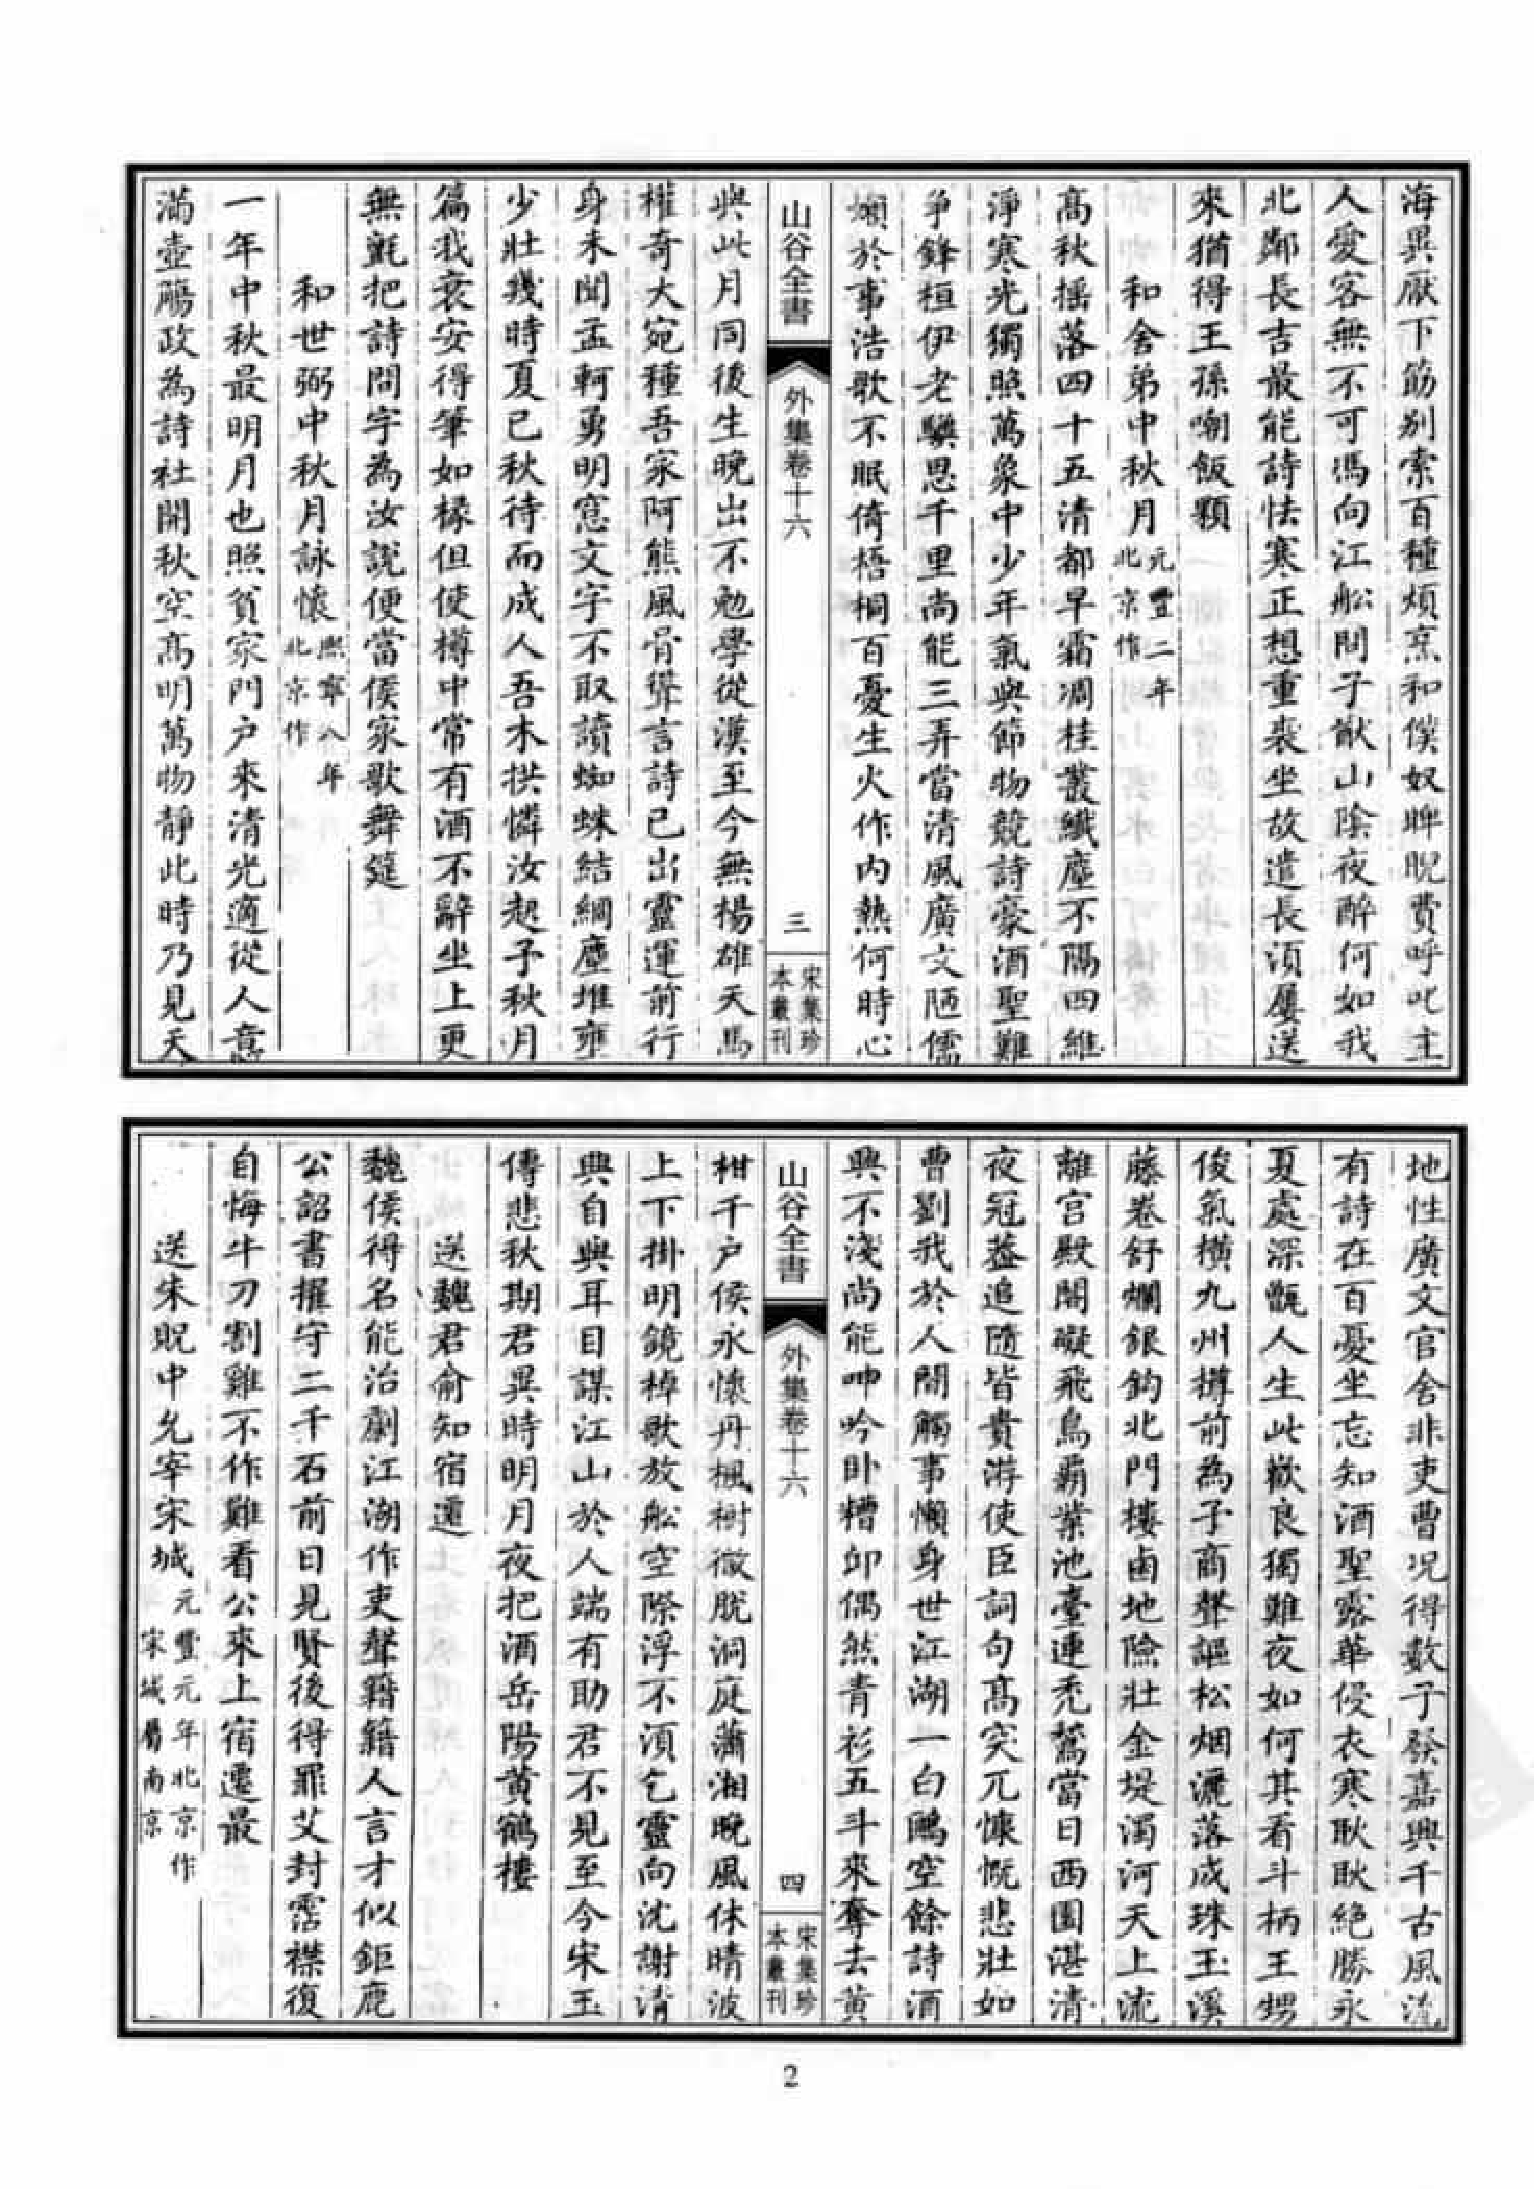 海異厭下筯別索百種煩烹和傒奴睥睨費呼叱主
人愛客無不可馮向江船問子猷山陰夜醉何如我
北鄰長吉最能詩怯寒正想重裘坐故遣長湏屢送
來猶得王孫嘲飯顆
和舍弟中秋月元豐二年
北京作
高秋揺落四十五清都早霜凋桂叢纖塵不隔四維
淨寒光獨照萬象中少年氣與節物競詩豪酒聖難
争鋒桓伊老驥思千里尚能三弄當清風廣文陋儒
嬾於事浩歌不眠倚梧桐百憂生火作内熱何時心
山谷全書
外集卷十六
三
宋集珍
本叢刊
與此月同後生晚出不勉學從漢至今無楊雄天馬
權奇大宛種吾家阿熊風骨聳言詩已出靈運前行
身未聞孟軻勇明窓文字不取讀蜘蛛結網塵堆壅
少壯幾時夏已秋待而成人吾木拱憐汝起予秋月
篇我衰安得筆如椽但使樽中常有酒不辭坐上更
無氊把詩問字為汝說便當侯家歌舞筵
和世弼中秋月詠懷熙寧八年
北京作
一年中秋最明月也照貧家門户來清光適從人意
滿壺觴政為詩社開秋空高明萬物靜此時乃見天
地性廣文官舍非吏曹况得數子發嘉興千古風流
有詩在百憂坐忘知酒聖露華侵衣寒耿耿絶勝永
夏處深甑人生此歡良獨難夜如何其看斗柄王甥
俊氣横九州樽前為子商聲謳松烟灑落成珠玉溪
藤卷舒爛銀鈎北門樓鹵地險壯金堤濁河天上流
離宫殿閣礙飛鳥霸業池臺連秃鶖當日西園湛清
夜冠葢追隨皆貴游使臣詞句髙突兀慷慨悲壯如
曹劉我於人間觸事懶身世江湖一白鷗空餘詩酒
興不淺尚能呻吟卧糟邱偶然青衫五斗來奪去黄
山谷全書
外集卷十六
四
宋集珍
本叢刊
柑千户侯永懷丹楓樹微脱洞庭瀟湘晚風休晴波
上下掛明鏡棹歌放船空際浮不湏乞靈向沈謝清
興自與耳目謀江山於人端有助君不見至今宋玉
傳悲秋期君異時明月夜把酒岳陽黄鶴樓
送魏君俞知宿遷
魏侯得名能治劇江湖作吏聲籍籍人言才似鉅鹿
公詔書擢守二千石前日見賢後得罪艾封霑襟復
自悔牛刀割雞不作難看公來上宿遷最
送朱貺中允宰宋城元豐元年北京作
宋城屬南京
2